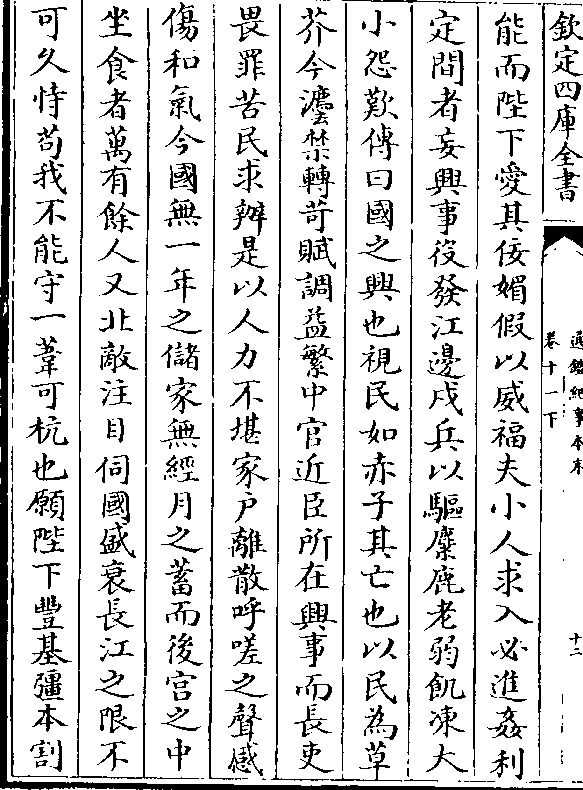 欽定四庫全書
通鑑紀事本末
卷十一下
十二
能而陛下愛其佞媚假以威福夫小人求入必進姦利
定間者妄興事役發江邊戍兵以驅麋鹿老弱飢凍大
小怨歎傳曰國之興也視民如赤子其亡也以民為草
芥今灋禁轉苛賦調益繁中官近臣所在興事而長吏
畏罪苦民求辦是以人力不堪家戶離散呼嗟之聲感
傷和氣今國無一年之儲家無經月之蓄而後宫之中
坐食者萬有餘人又北敵注目伺國盛衰長江之限不
可久恃苟我不能守一葦可杭也願陛下豐基彊本割